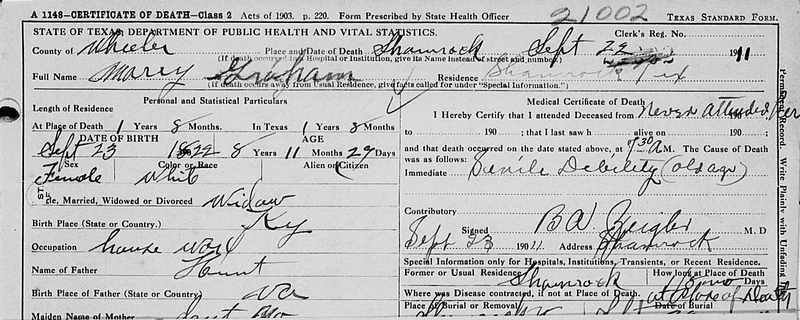 A 1148-CERTIFICATE OF DEATH-Class 2 Acts of 1903. p. 220. Form Prescribed by State Health Officer 21002 TEXAS STANDARD FORM.
STATE OF TEXAS, DEPARTMENT OF PUBLIC HEALTH AND VITAL STATISTICS. Clerk's Reg. No.
County of Wheeler Place and Date of Death Shamrock Sept 22 11
(If death occurred in Hospital or Institution, give its Name instead of street and number.)
Full Name Marcy Graham Residence Shamrock Tex
(If death occurs away from Usual Residence, give facts called for under "Special Information.")
Personal and Statistical Particulars
Length of Residence
At Place of Death 1 Years 8 Months. In Texas 1 Years 8 Months
DATE OF BIRTH AGE
Sept 23 1822 8 Years 11 Months 29 Days
Sex Color or Race Alien or Citizen
Female White
Single, Married, Widowed or Divorced Widow
Birth Place (State or Country.) Ky
Occupation house work
Name of Father Hunt
Birth Place of Father (State or Country)
Maiden Name of Mother
Medical Certificate of Death
I Hereby Certify that I attended Deceased from Never attended her
to 190 ; that I last saw h alive on 190 ;
and that death occurred on the date stated above, at 7.30 A.M. The Cause of Death
was as follows:
Immediate Senile Debility (old age)
Contributory
Signed B A Zeigler M. D
Sept 23 1911 Address Shamrock
Special Information only for Hospitals, Institutions, Transients, or Recent Residents.
Former or Usual Residence Shamrock How long at Place of Death Days
Where was Disease contracted, if not at Place of Death? at place of Death
Place of Burial or Removal Date of Burial
Permanent Record. Write Plainly with Unfading